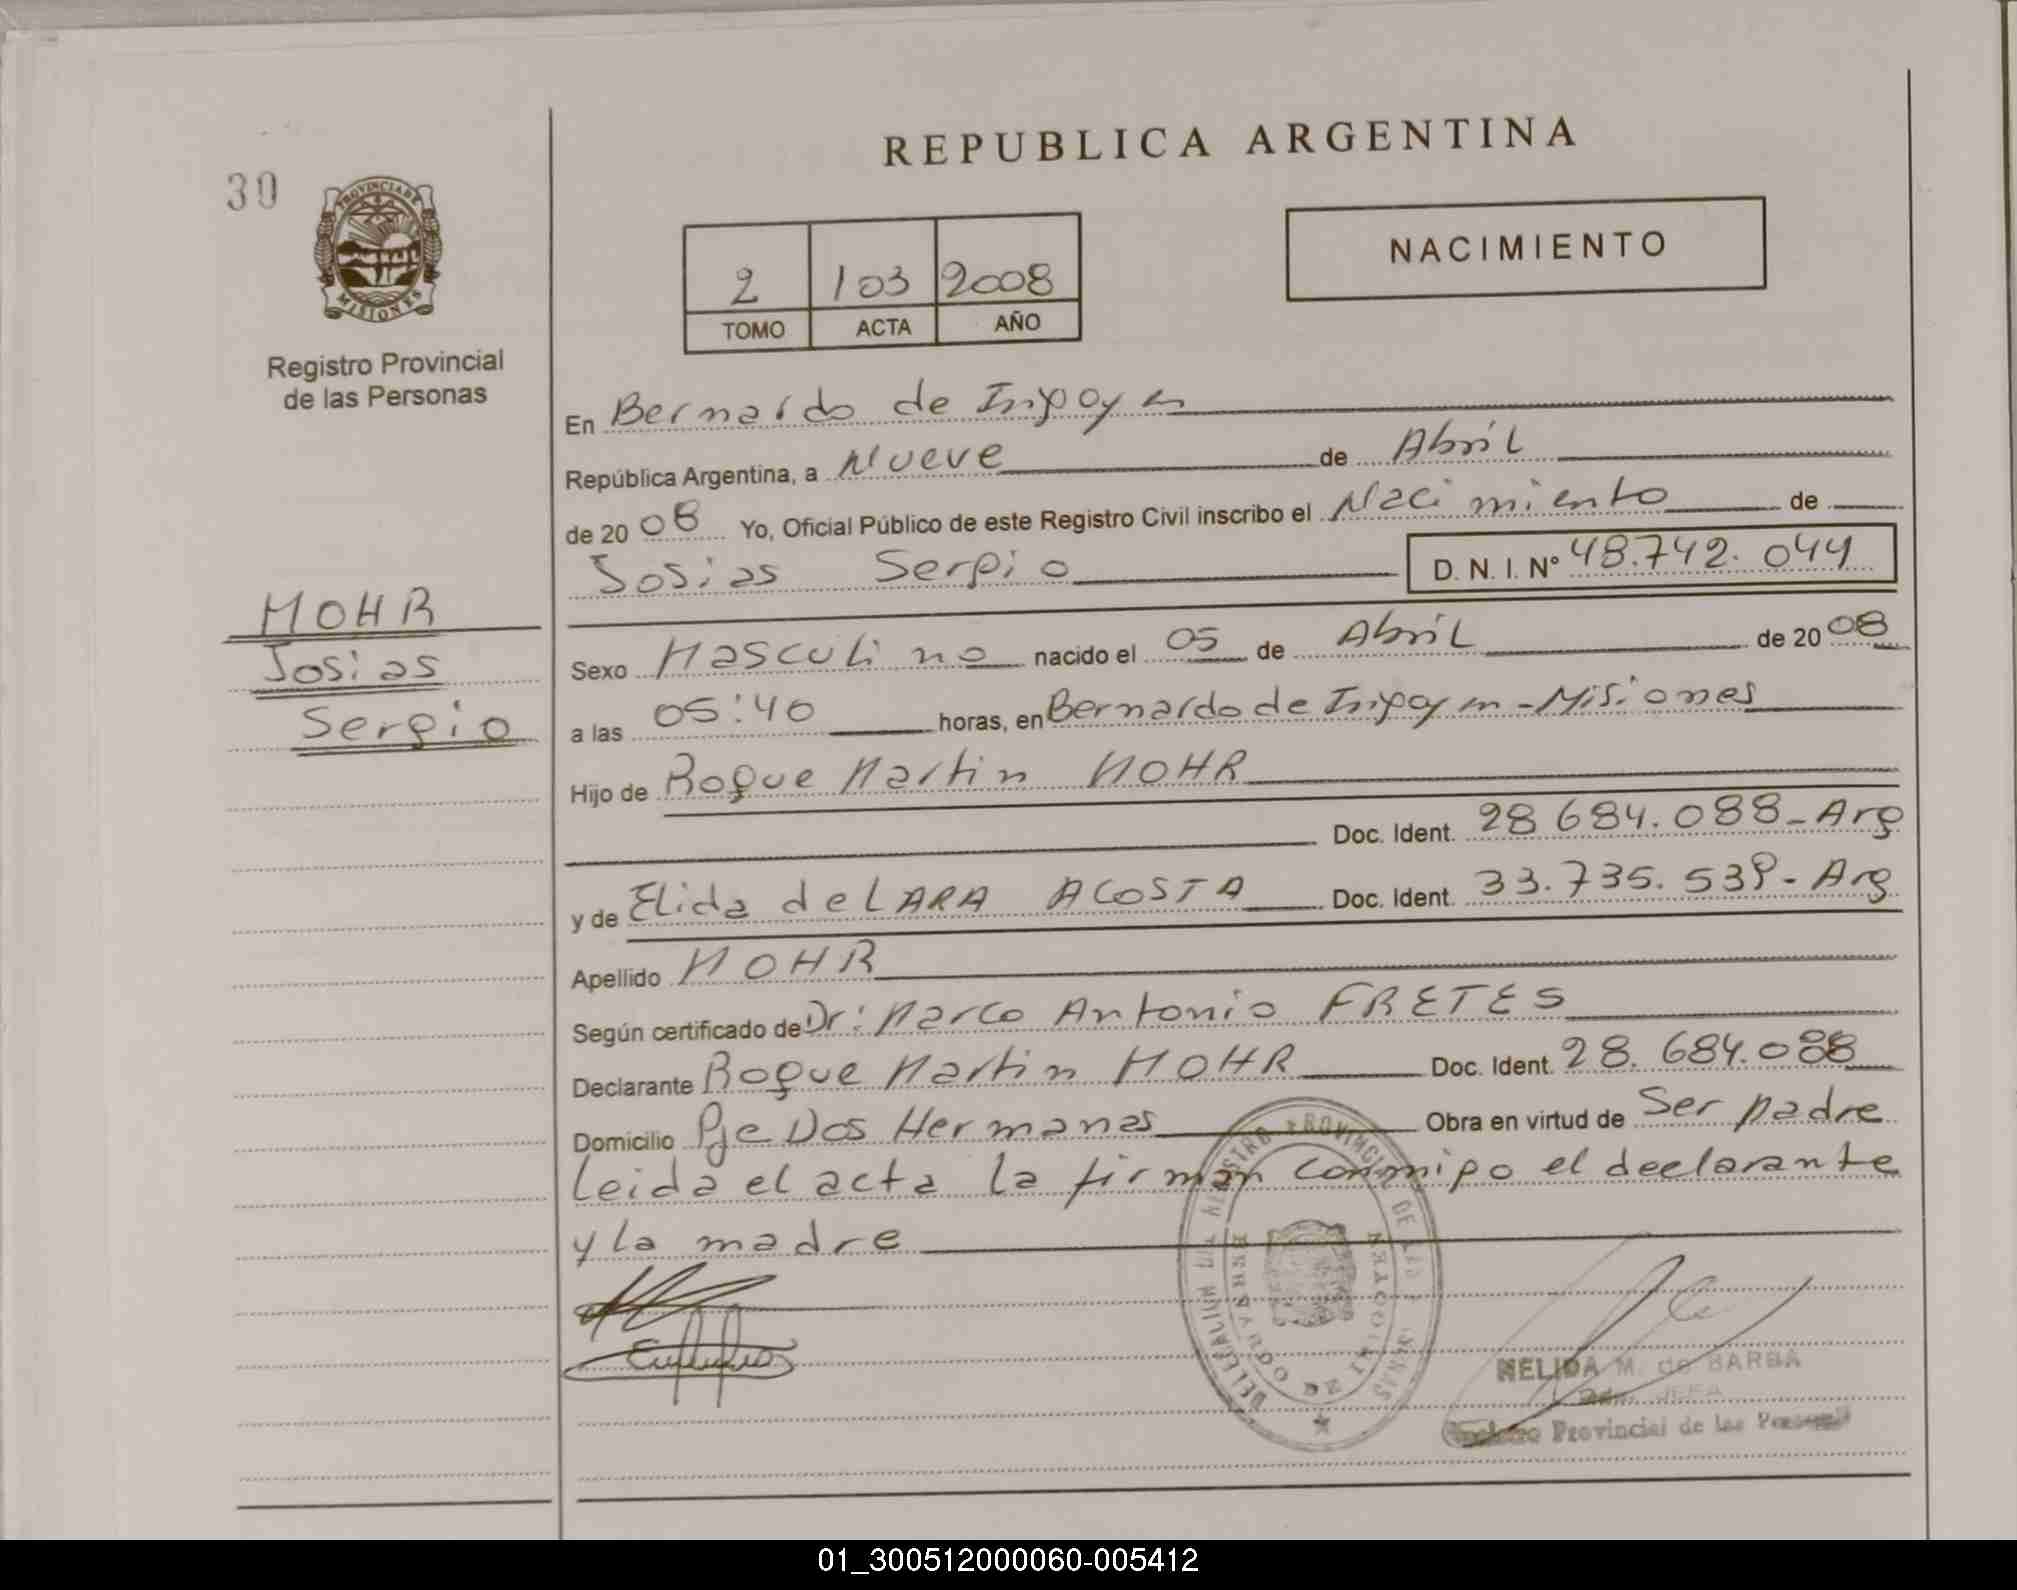 REPUBLICA ARGENTINA
30
PROVINCIA DE
MISIONES
Registro Provincial
de las Personas
2 103 2008
TOMO ACTA AÑO
NACIMIENTO
En Bernardo de Irigoyen
República Argentina, a Nueve de Abril
de 2008 Yo, Oficial Público de este Registro Civil inscribo el Nacimiento de
Josias Sergio D. N. I. Nº 48.742.044
MOHR
Josias
Sergio
Sexo Masculino nacido el 05 de Abril de 2008
a las 05:40 horas, en Bernardo de Irigoyen - Misiones
Hijo de Roque Martin MOHR
Doc. Ident. 28.684.088 - Arg
y de Elida de LARA ACOSTA Doc. Ident. 33.735.539 - Arg
Apellido MOHR
Según certificado de Dr: Marco Antonio FRETES
Declarante Roque Martin MOHR Doc. Ident. 28.684.088
Domicilio Pje Dos Hermanas Obra en virtud de Ser padre
Leida el acta la firman conmigo el declarante
y la madre
NELIDA M. de BARBA
Provincial de las
01_300512000060-005412